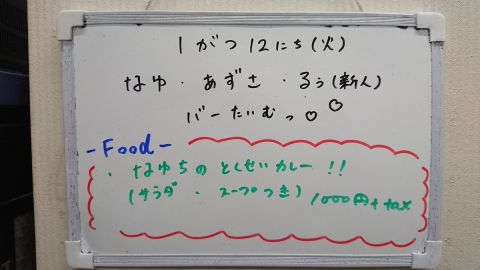 1がつ12にち(火)
なゆ・あずさ・るぅ(新人)
バーたいむっ♡♡
-Food-
・なゆちのとくせいカレー!!
(サラダ・スープつき) 1000円+tax